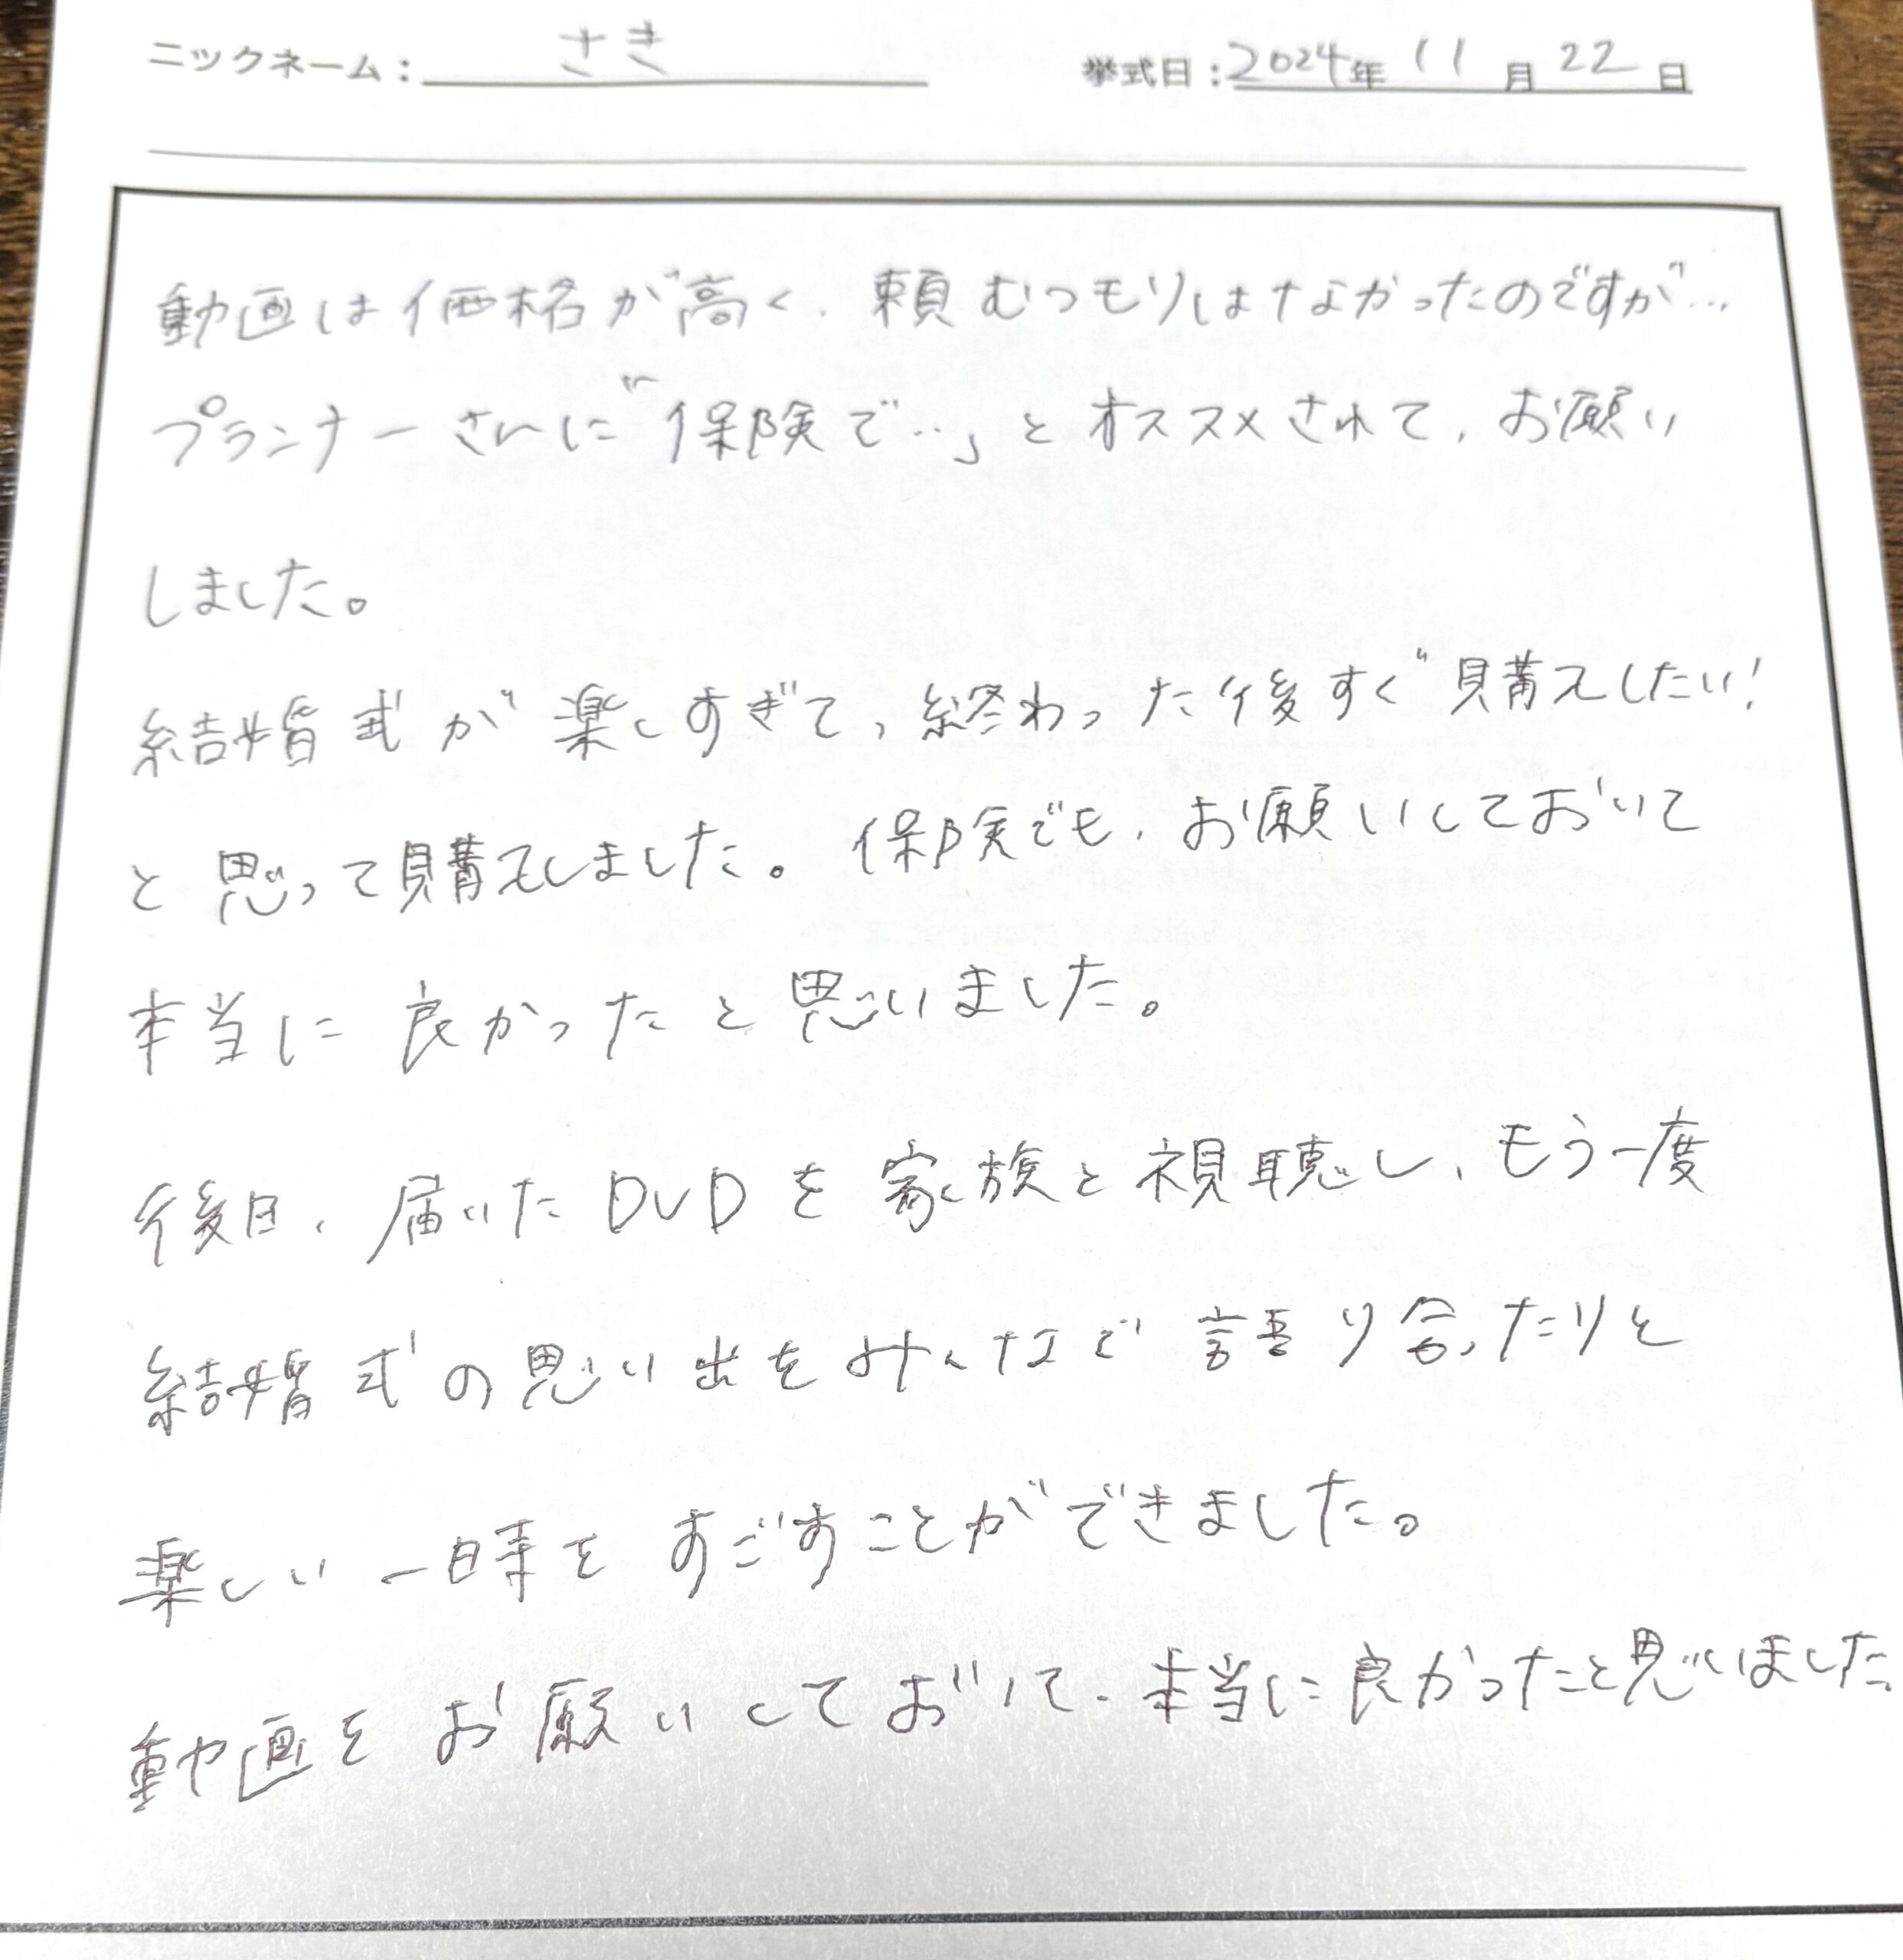 ニックネーム： さき 挙式日：2024年 11月 22日
動画は価格が高く、頼むつもりはなかったのですが…
プランナーさんに「保険で…」とオススメされて、お願い
しました。
結婚式が楽しすぎて、終わった後すぐ購入したい！
と思って購入しました。保険でも、お願いしておいて
本当に良かったと思いました。
後日、届いたDVDを家族と視聴し、もう一度
結婚式の思い出をみんなで語り合ったりと
楽しい一時をすごすことができました。
動画をお願いしておいて、本当に良かったと思いました。